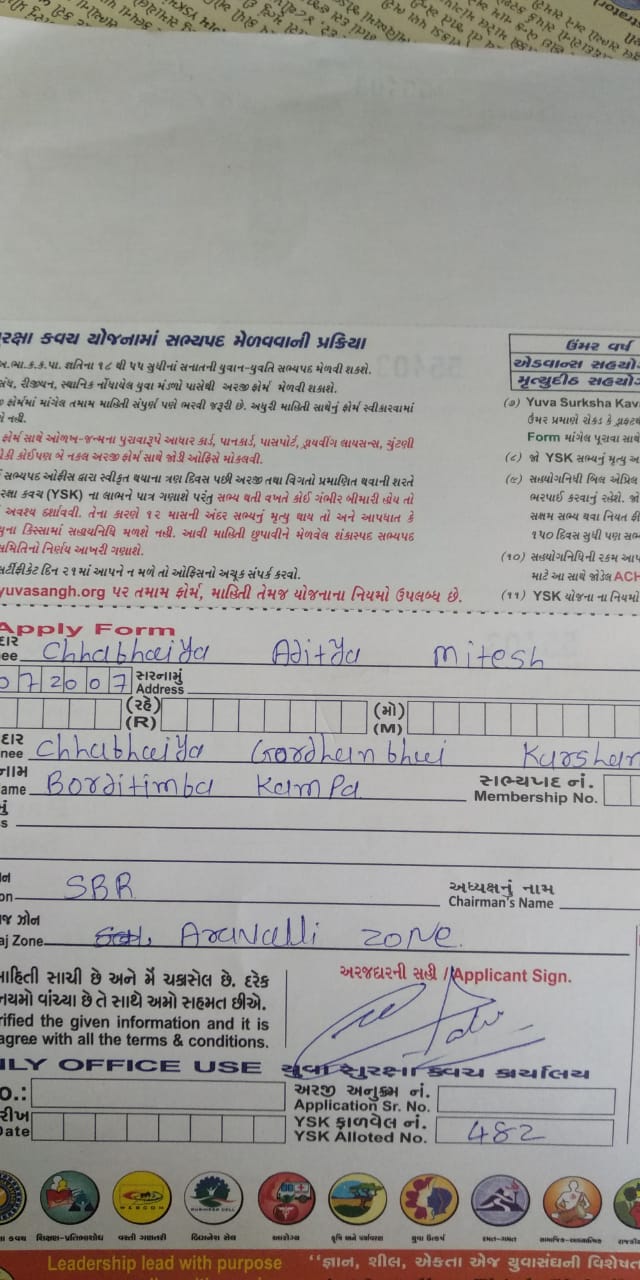 રક્ષા કવચ યોજનામાં સભ્યપદ મેળવવાની પ્રક્રિયા
અ.ભા.ક.ક.પા. જ્ઞાતિના ૧૮ થી ૫૫ સુધીનાં સનાતની યુવાન-યુવતિ સભ્યપદ મેળવી શકશે.
રીજીયન, સ્થાનિક નોંધાયેલ યુવા મંડળો પાસેથી અરજી ફોર્મ મેળવી શકાશે.
ફોર્મમાં માંગેલ તમામ માહિતી સંપુર્ણ પણે ભરવી જરૂરી છે. અધુરી માહિતી સાથેનું ફોર્મ સ્વીકારવામાં
નહી.
ફોર્મ સાથે ઓળખ-જન્મના પુરાવારૂપે આધાર કાર્ડ, પાનકાર્ડ, પાસપોર્ટ, ડ્રાયવીંગ લાયસન્સ, ચુંટણી
કોઈપણ બે નકલ અરજી ફોર્મ સાથે જોડી ઓફિસે મોકલવી.
સભ્યપદ ઓફીસ દ્વારા સ્વીકૃત થયાના ત્રણ દિવસ પછી અરજી તથા વિગતો પ્રમાણિત થવાની શરતે
રક્ષા કવચ (YSK) ના લાભને પાત્ર ગણાશે પરંતુ સભ્ય થતી વખતે કોઈ ગંભીર બીમારી હોય તો
અવશ્ય દર્શાવવી. તેના કારણે ૧૨ માસની અંદર સભ્યનું મૃત્યુ થાય તો અને આપઘાત કે
કિસ્સામાં સહાયનિધિ મળશે નહી. આવી માહિતી છુપાવીને મેળવેલ શંકાસ્પદ સભ્યપદ
સમિતિનો નિર્ણય આખરી ગણાશે.
સર્ટીફીકેટ દિન ૨૧માં આપને ન મળે તો ઓફિસનો અચૂક સંપર્ક કરવો.
yuvasangh.org પર તમામ ફોર્મ, માહિતી તેમજ યોજનાના નિયમો ઉપલબ્ધ છે.
ઉંમર વર્ષ
એડવાન્સ સહયો
મૃત્યુદીઠ સહયો
(૭) Yuva Surksha Kav
ઉંમર પ્રમાણે ચેક કે
Form માંગેલ પૂરાવા સાથે
(૮) જો YSK સભ્યનું મૃત્યુ અ
(૯) સહયોગનિધી બિલ એપ્રિલ
ભરપાઈ કરવાનું રહેશે. જો
સક્ષમ સભ્ય થવા નિયત ફી
૧૫૦ દિવસ સુધી પણ સભ્
(૧૦) સહયોગનિધિની રકમ આપ
માટે આ સાથે જોડેલ ACH
(૧૧) YSK યોજના ના નિયમો
Apply Form
દાર
ee Chhabhaiya Aditya Mitesh
07 2007 સરનામું
Address
(રહે)
(R)
(મો)
(M)
દાર
nee Chhabhaiya Gordhanbhai Karshan
નામ
ame Borditimba Kampa
સભ્યપદ નં.
Membership No.
on SBR
અધ્યક્ષનું નામ
Chairman's Name
જ ઝોન
aj Zone Aravalli ZONE.
માહિતી સાચી છે અને મેં ચકાસેલ છે. દરેક
નિયમો વાંચ્યા છે તે સાથે અમો સહમત છીએ.
rified the given information and it is
agree with all the terms & conditions.
અરજદારની સહી / Applicant Sign.
NLY OFFICE USE યુવા સુરક્ષા કવચ કાર્યાલય
o.:
અરજી અનુક્રમ નં.
Application Sr. No.
રીખ
Date
YSK ફાળવેલ નં.
YSK Alloted No. 482
કવચ શિક્ષણ-પ્રતિભાશોધ વસ્તી ગણતરી બિઝનેસ સેલ આરોગ્ય કૃષિ અને પર્યાવરણ યુવા ઉત્કર્ષ રમત-ગમત સામાજિક-આધ્યાત્મિક
Leadership lead with purpose
“જ્ઞાન, શીલ, એકતા એજ યુવાસંઘની વિશેષત